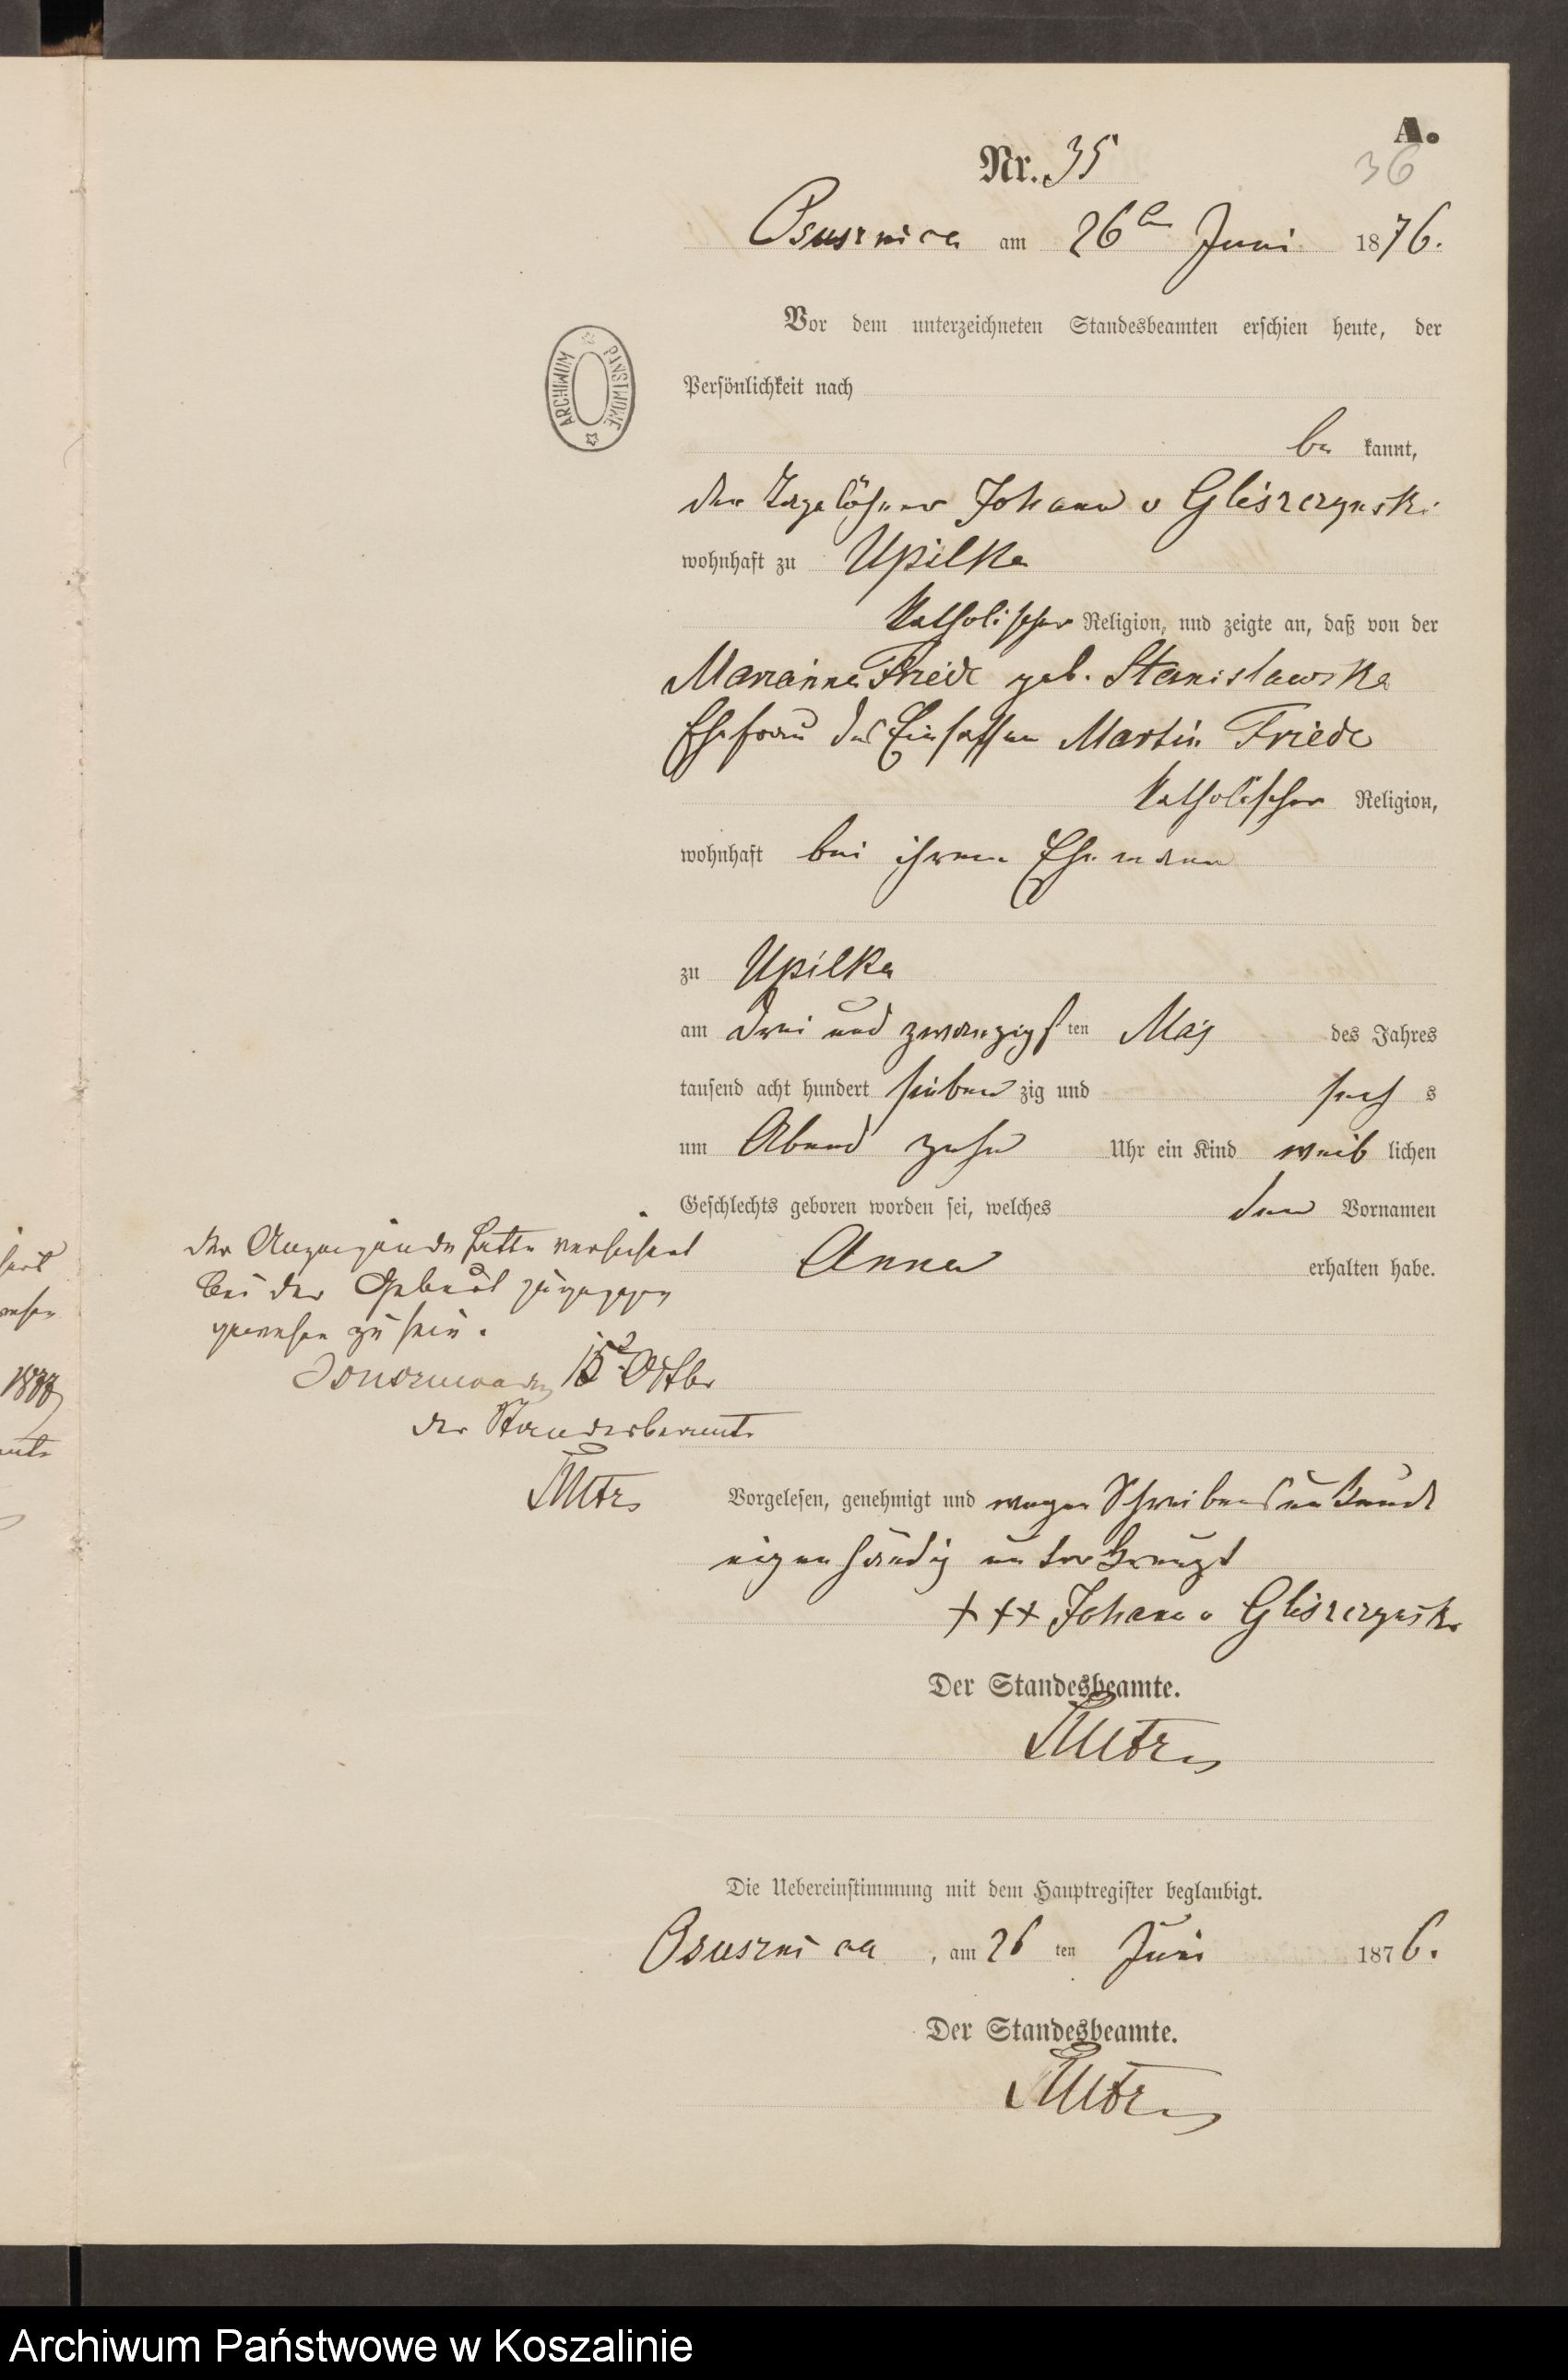 A.
Nr. 35
36
Osusznica am 26ten Juni 1876.
Vor dem unterzeichneten Standesbeamten erschien heute, der
Persönlichkeit nach
be kannt,
der Tagelöhner Johann v Gliszczynski
wohnhaft zu Upilka
katholischer Religion, und zeigte an, daß von der
Marianna Friede geb. Stanislawska
Ehefrau des Einsassen Martin Friede
katholischer Religion,
wohnhaft bei ihrem Ehemann
zu Upilka
am drei und zwanzigsten Maj des Jahres
tausend acht hundert siebenzig und sechs
um Abend zehn Uhr ein Kind weiblichen
Geschlechts geboren worden sei, welches den Vornamen
Anna erhalten habe.
Der Anzeigende hatte versichert
bei der Geburt zugegen
gewesen zu sein.
15 Octbr
der Standesbeamte
Vorgelesen, genehmigt und wegen Schreibensunkunde
eigenhändig unterkreuzt
+++ Johann v Gliszczynski
Der Standesbeamte.
Die Uebereinstimmung mit dem Hauptregister beglaubigt.
Osusznica, am 26ten Juni 1876.
Der Standesbeamte.
ARCHIWUM PAŃSTWOWE
Archiwum Państwowe w Koszalinie